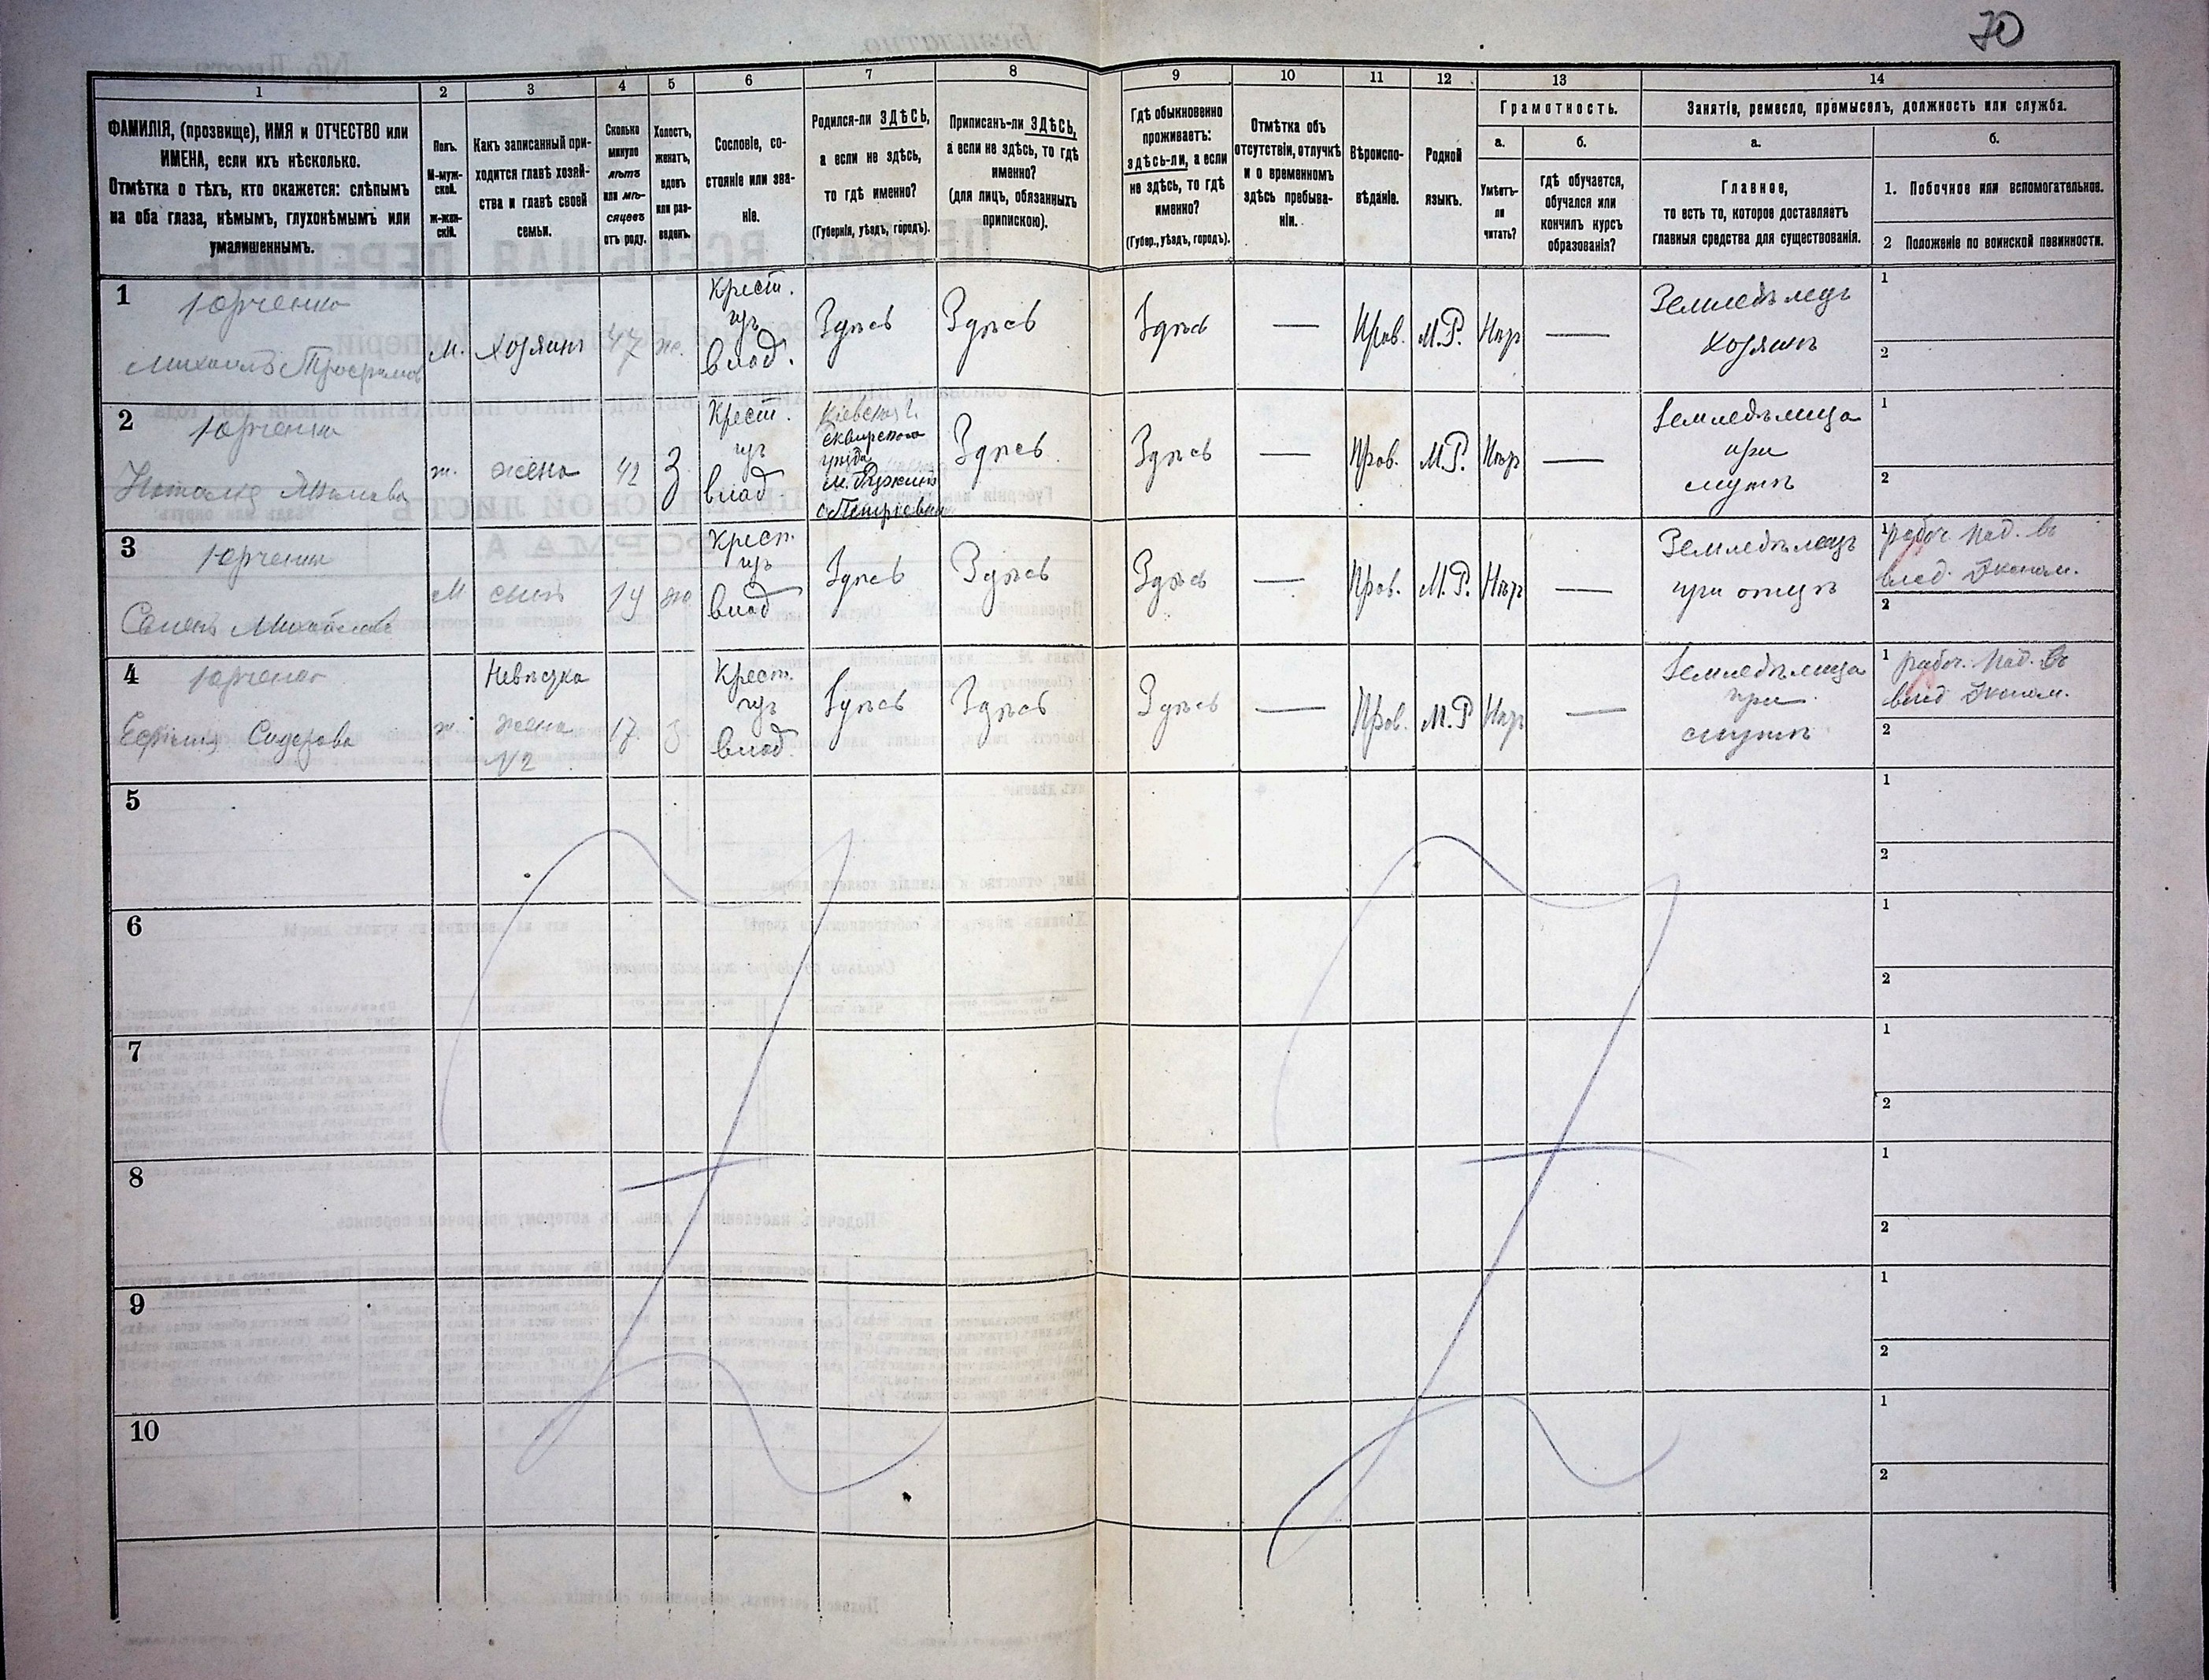 70
1
2
3
4
5
6
7
8
9
10
11
12
13
14
ФАМИЛІЯ, (прозвище), ИМЯ и ОТЧЕСТВО или
ИМЕНА, если ихъ нѣсколько.
Отмѣтка о тѣхъ, кто окажется: слѣпымъ
на оба глаза, нѣмымъ, глухонѣмымъ или
умалишеннымъ.
Полъ.
М-муж-
ской.
ж-жен-
скій.
Какъ записанный при-
ходится главѣ хозяй-
ства и главѣ своей
семьи.
Сколько
минуло
лѣтъ
или мѣ-
сяцевъ
отъ роду.
Холостъ,
женатъ,
вдовъ
или раз-
веденъ.
Сословіе, со-
стояніе или зва-
ніе.
Родился-ли ЗДѢСЬ,
а если не здѣсь,
то гдѣ именно?
(Губернія, уѣздъ, городъ).
Приписанъ-ли ЗДѢСЬ,
а если не здѣсь, то гдѣ
именно?
(для лицъ, обязанныхъ
припискою).
Гдѣ обыкновенно
проживаетъ:
здѣсь-ли, а если
не здѣсь, то гдѣ
именно?
(Губер., уѣздъ, городъ).
Отмѣтка объ
отсутствіи, отлучкѣ
и о временномъ
здѣсь пребыва-
ніи.
Вѣроиспо-
вѣданіе.
Родной
языкъ.
Грамотность.
а.
б.
Умѣетъ-
ли
читать?
гдѣ обучается,
обучался или
кончилъ курсъ
образованія?
Занятіе, ремесло, промыселъ, должность или служба.
а.
б.
Главное,
то есть то, которое доставляетъ
главныя средства для существованія.
1. Побочное или вспомогательное.
2 Положеніе по воинской повинности.
1
Юрченко
Михаилъ Трофимов
м.
хозяинъ
47
ж.
Крест.
изъ
влад.
Здѣсь
Здѣсь
Здѣсь
—
Прав.
М.Р.
Нѣт
—
Земледѣлецъ
Хозяинъ
1
2
2
Юрченко
ж.
жена
42
З
Крест.
изъ
влад.
Кіевская г.
Сквирского
уѣзда
Здѣсь
Здѣсь
—
Прав.
М.Р.
Нѣт
—
Земледѣлица
при
мужѣ
1
2
3
Юрченко
Семенъ
М
сынъ
19
же
Крест.
изъ
влад
Здѣсь
Здѣсь
Здѣсь
—
Прав.
М.Р.
Нѣт
—
Земледѣлецъ
при отцѣ
1 рабоч. пад. въ
влад. Эконом.
2
4
Юрченко
Сидорова
ж.
Невѣстка
жена
№2
17.
З
Крест.
изъ
влад
Здѣсь
Здѣсь
Здѣсь
—
Прав.
М.Р
Нѣт
—
Земледѣлица
при
1 рабоч. пад. въ
влад Эконом.
2
5
1
2
6
1
2
7
1
2
8
1
2
9
1
2
10
1
2